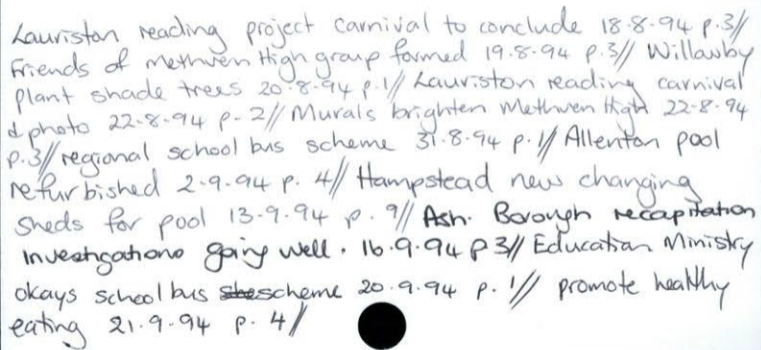 Lauriston reading project carnival to conclude 18.8.94 p.3//
Friends of Methven High group formed 19.8.94 p.3// Willowby
plant shade trees 20.8.94 p.1// Lauriston reading carnival
& photo 22.8.94 p.2// Murals brighten Methven High 22.8.94
p.3// regional school bus scheme 31.8.94 p.1// Allenton pool
refurbished 2.9.94 p. 4// Hampstead new changing
sheds for pool 13.9.94 p. 9// Ash. Borough recapitation
investigations going well. 16.9.94 P 3// Education Ministry
okays school bus scheme 20.9.94 p. 1// promote healthy
eating 21.9.94 p. 4/